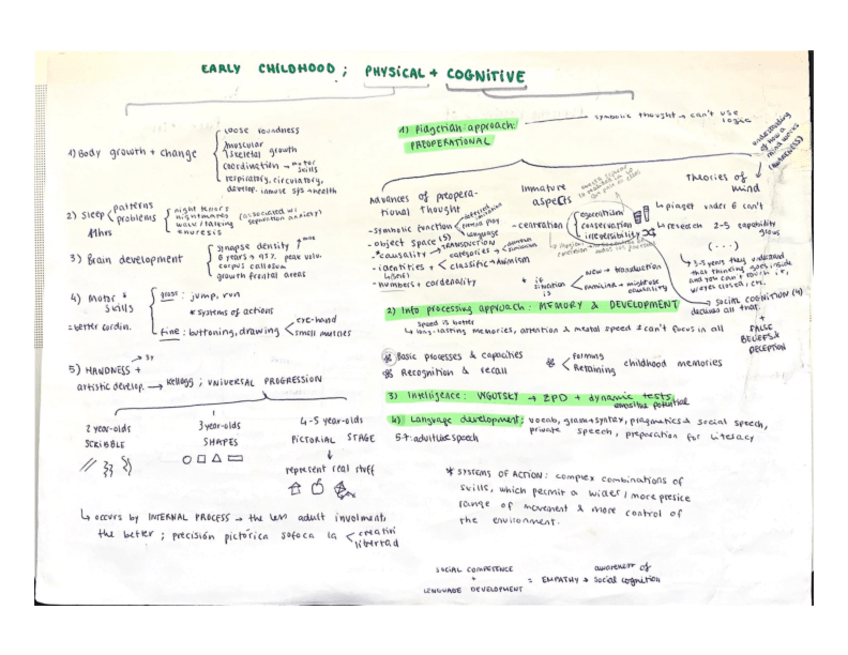 EARLY CHILDHOOD; PHYSICAL + COGNITIVE
1) Body growth + change
loose roundness
muscular
skeletal growth
coordination → motor skills
respiratory, circulatory,
develop. inmune sys → health
2) Sleep
patterns
problems
11hrs
night terrors
nightmares
walk/talking
enuresis
(associated w/ separation anxiety)
3) Brain development
synapse density ↑ max
6 years → 95% peak volu.
corpus callosum
growth frontal areas
4) Motor skills
= better cordin.
gross: jump, run
* systems of actions
fine: buttoning, drawing
eye-hand
small muscles
→ 3y
5) HANDNESS +
artistic develop. → Kellogg; UNIVERSAL PROGRESSION
2 year-olds
SCRIBBLE
3 year-olds
SHAPES
4-5 year-olds
PICTORIAL STAGE
represent real stuff
↳ occurs by INTERNAL PROCESS → the less adult involment,
the better; precisión pictórica sofoca la
creativi
libertad
1) Piagerian approach:
PREOPERATIONAL
symbolic thought → can't use logic
Advances of preopera-
tional thought
- symbolic function
deferred imitation
pretend play
language
- object space (s)
- causality → TRANSDUCTION
- identities +
categories →
classific → Animism
- numbers + cordenality
Immature
aspects
- centration
egocentrism
conservation
irreversibility
* if situation is
new → transduction
familiar → might use causality
Theories of
mind
understanding of how a mind works (AWARENESS)
↳ piaget under 6 can't
↳ research 2-5 capability grows
(...)
↳ 3-5 years they understand
that thinking goes inside
and you can't touch it,
w/ eyes closed, etc.
→ SOCIAL COGNITION (4)
declines all that.
+
FALSE
BELIEFS &
DECEPTION
2) Info processing approach: MEMORY & DEVELOPMENT
speed is better
↳ long-lasting memories, attention & mental speed & can't focus in all
Basic processes & capacities
Recognition & recall
forming
Retaining
childhood memories
3) Intelligence: VIGOTSKY → ZPD + dynamic tests
potential
4) Language development: vocab, gram+syntax, pragmatics & social speech,
private speech, preparation for literacy
5-7: adultlike speech
* SYSTEMS OF ACTION: complex combinations of
skills, which permit a wider/more presice
range of movement & more control of
the environment.
SOCIAL COMPETENCE
+
LENGUAGE DEVELOPMENT
= EMPATHY +
awareness of
social cognition